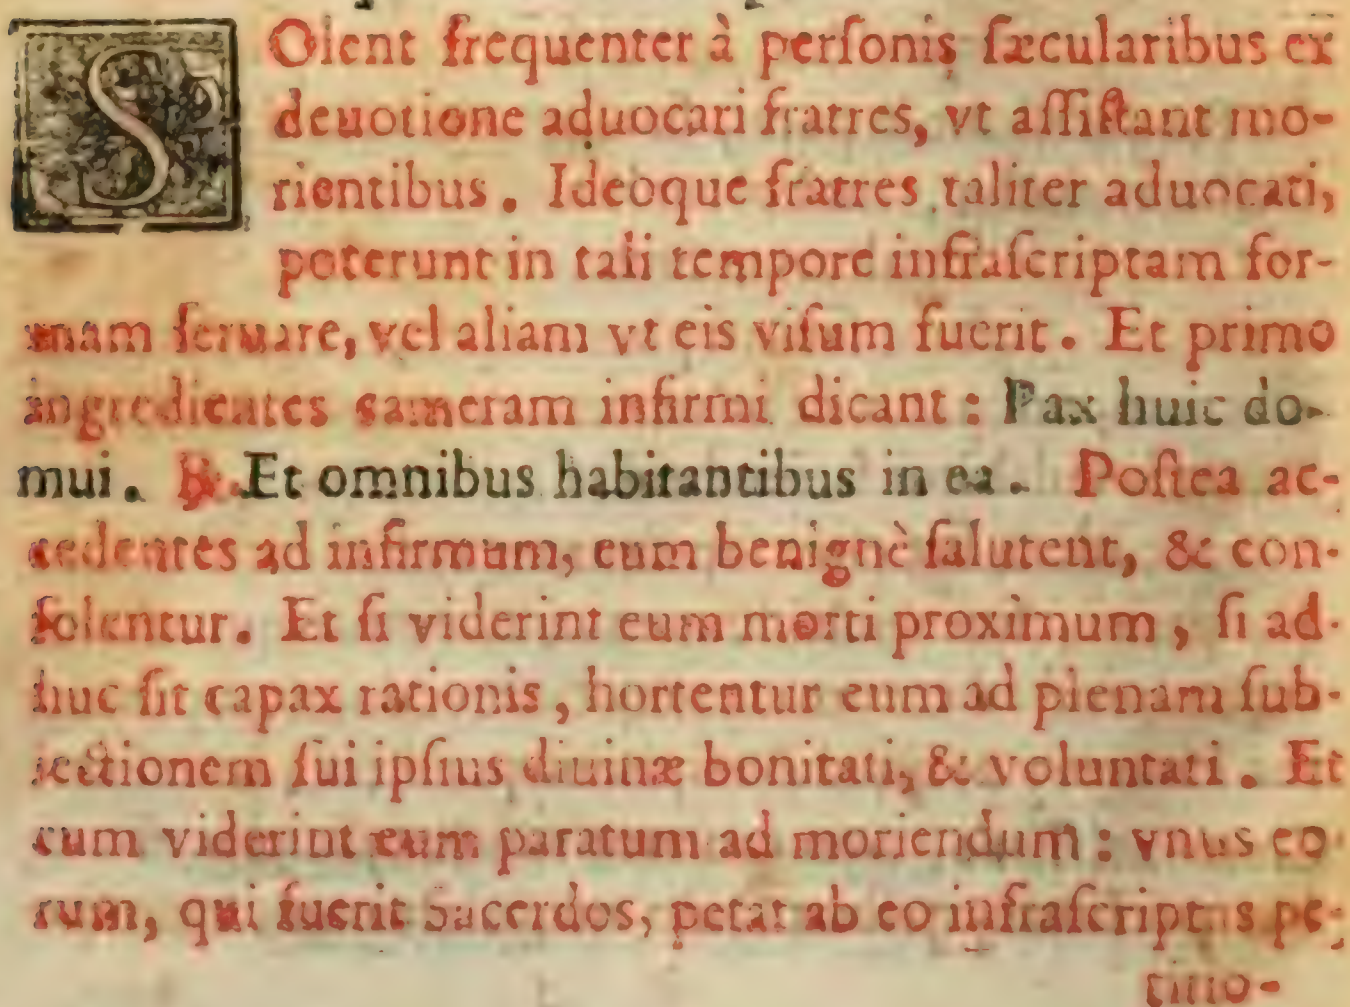 SOlent frequenter à perſonis ſæcularibus ex
deuotione aduocari fratres, vt aſſiſtant mo-
rientibus. Ideoque fratres taliter aduocati,
poterunt in tali tempore infraſcriptam for-
mam ſeruare, vel aliam vt eis viſum fuerit. Et primo
ingredientes cameram infirmi dicant: Pax huic do-
mui. ℟. Et omnibus habitantibus in ea. Poſtea ac-
cedentes ad infirmum, eum benignè ſalutent, & con-
ſolentur. Et ſi viderint eum morti proximum, ſi ad-
huc ſit capax rationis, hortentur eum ad plenam ſub-
iectionem ſui ipſius diuinæ bonitati, & voluntati. Et
cum viderint eum paratum ad moriendum: vnus eo-
rum, qui fuerit Sacerdos, petat ab eo infraſcriptas pe-
titio-